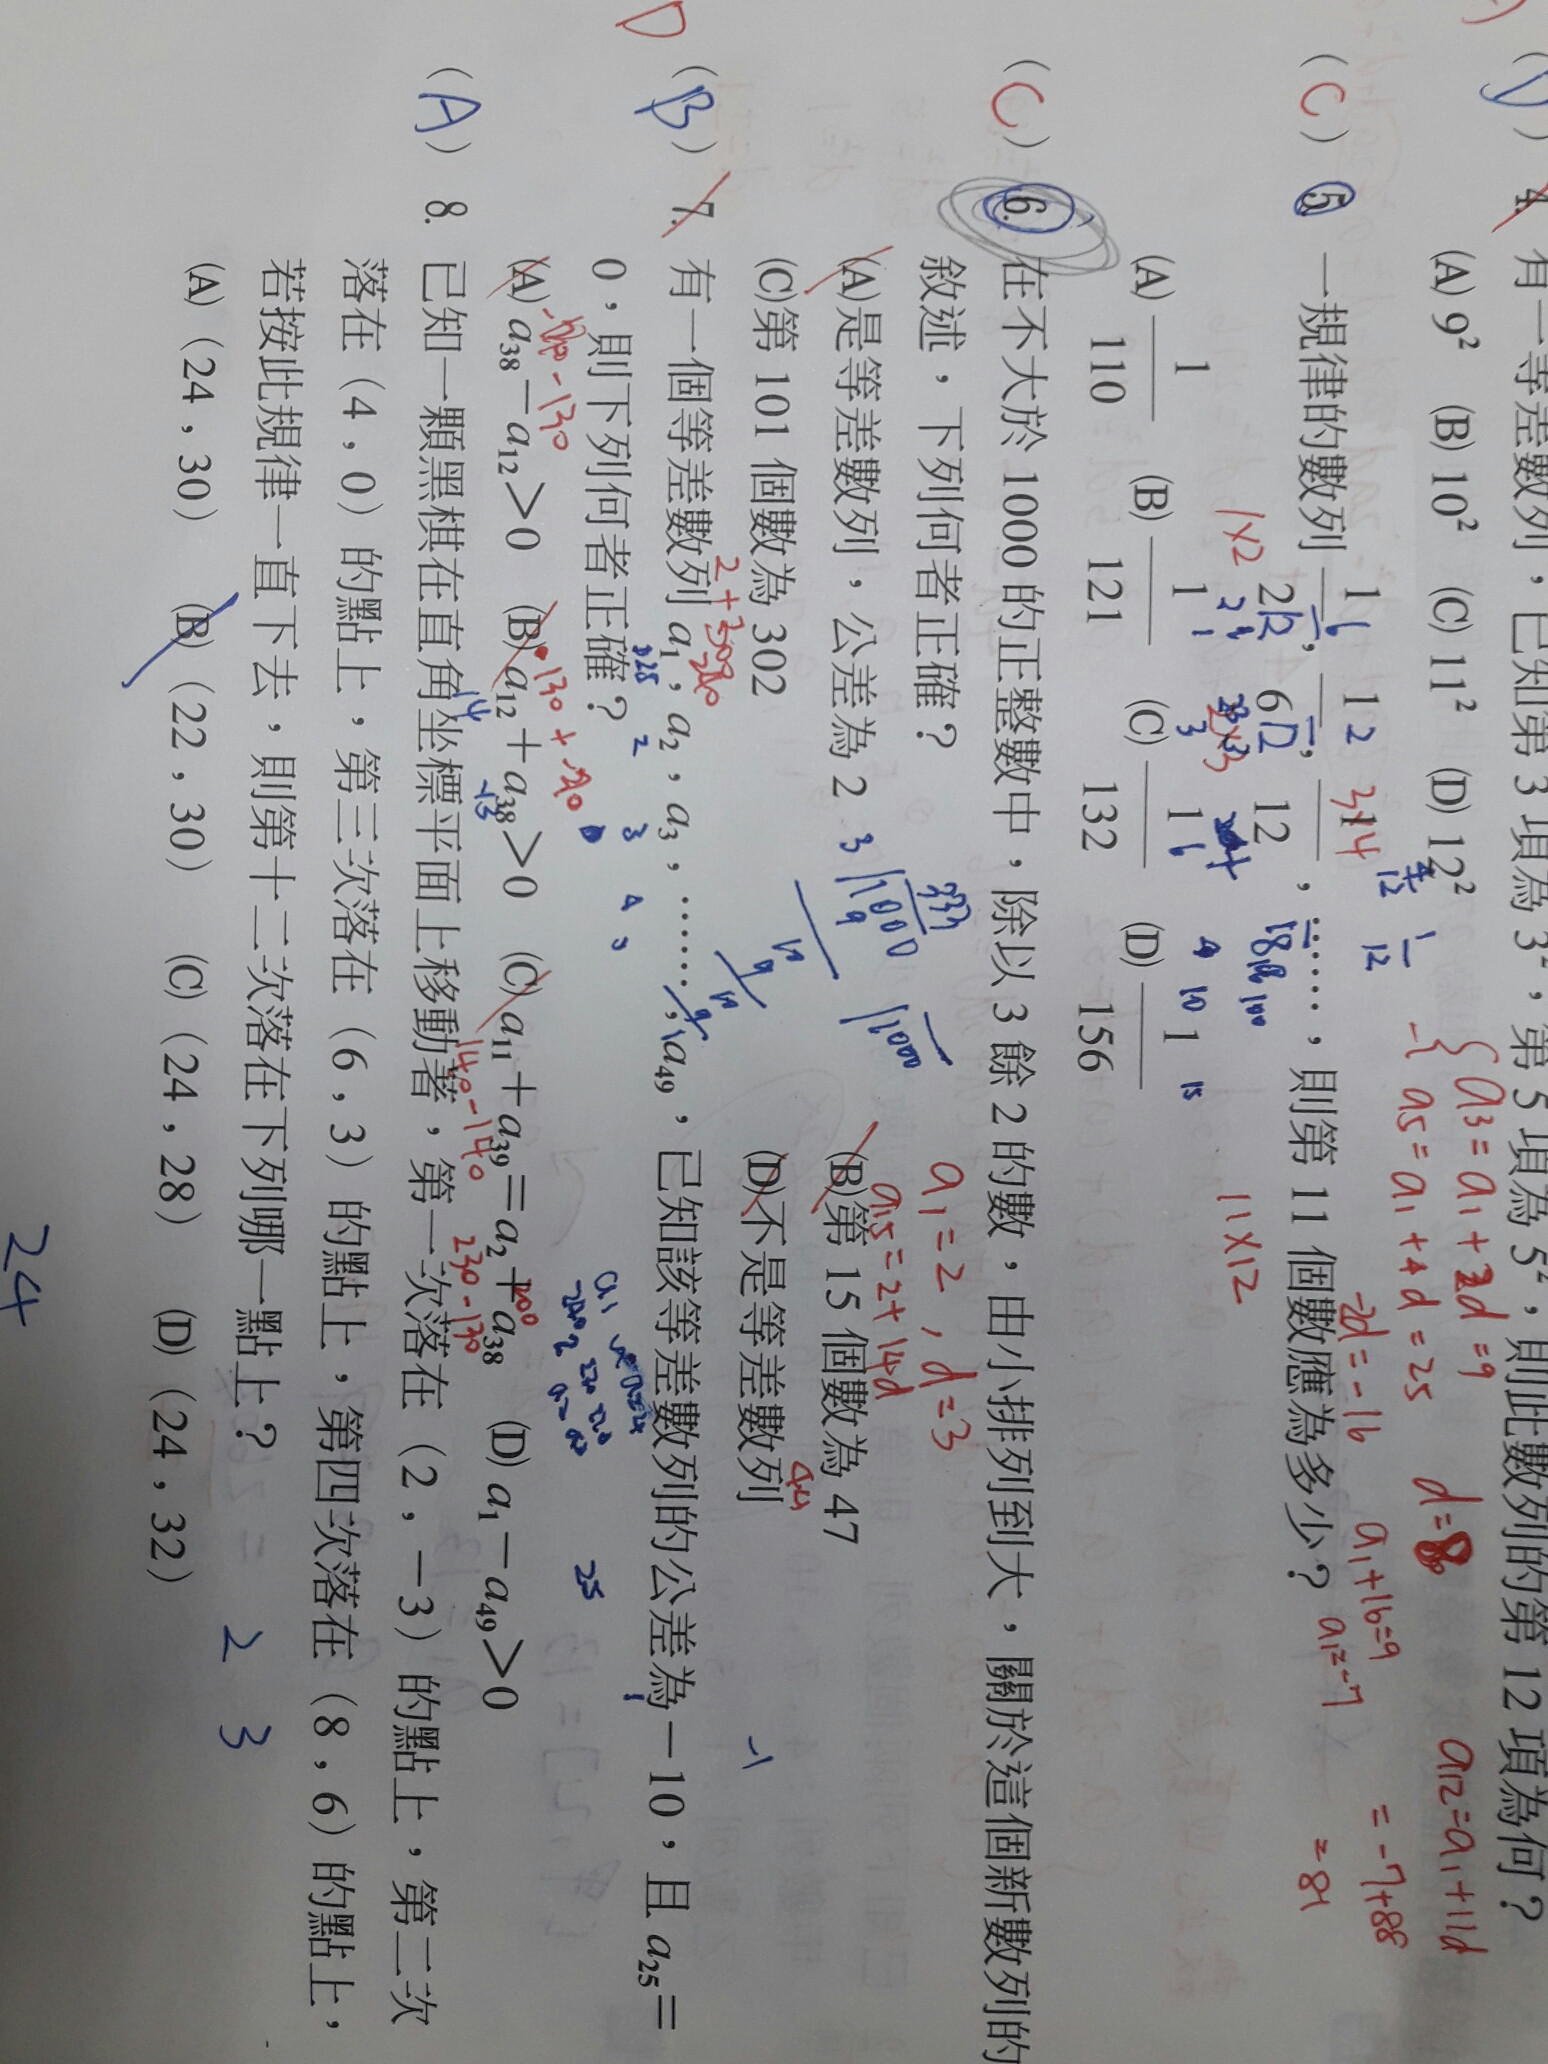 4. 有一等差數列，已知第 3 項為 3²，第 5 項為 5²，則此數列的第 12 項為何？
(A) 9² (B) 10² (C) 11² (D) 12²
a₃ = a₁ + 2d = 9
a₅ = a₁ + 4d = 25
-2d = -16
d = 8
a₁ + 16 = 9
a₁ = -7
a₁₂ = a₁ + 11d
= -7 + 88
= 81
(C) 5. 一規律的數列 1/2，1/6，1/12，……，則第 11 個數應為多少？
1×2 2×3 3×4 11×12
(A) 1/110 (B) 1/121 (C) 1/132 (D) 1/156
(C) 6. 在不大於 1000 的正整數中，除以 3 餘 2 的數，由小排列到大，關於這個新數列的
敘述，下列何者正確？
a₁ = 2，d = 3
a₁₅ = 2 + 14d
44
(A)是等差數列，公差為 2 (B)第 15 個數為 47
(C)第 101 個數為 302 (D)不是等差數列
D (B) 7. 有一個等差數列 a₁，a₂，a₃，……，a₄₉，已知該等差數列的公差為－10，且 a₂₅＝
0，則下列何者正確？
(A) a₃₈－a₁₂＞0 (B) a₁₂＋a₃₈＞0 (C) a₁₁＋a₃₉＝a₂＋a₃₈ (D) a₁－a₄₉＞0
140-140 230-130
(A) 8. 已知一顆黑棋在直角坐標平面上移動著，第一次落在（2，－3）的點上，第二次
落在（4，0）的點上，第三次落在（6，3）的點上，第四次落在（8，6）的點上，
若按此規律一直下去，則第十二次落在下列哪一點上？
(A)（24，30） (B)（22，30） (C)（24，28） (D)（24，32）
2 3
24